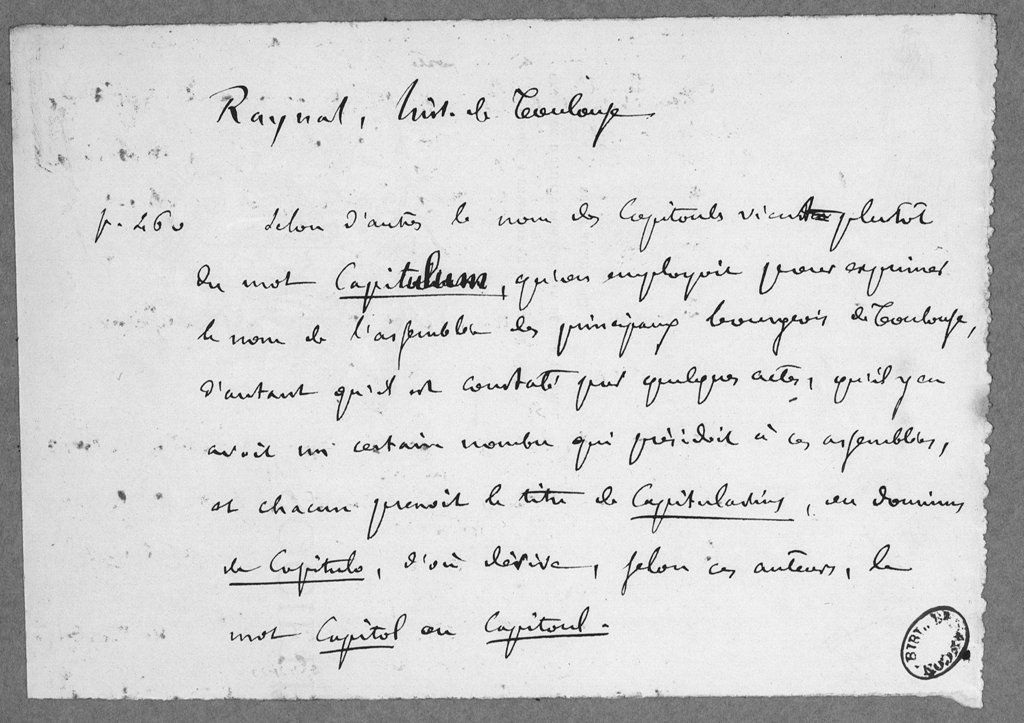 Raynal, hist. de Toulouse
p. 260 selon d'autres le nom des Capitouls vient plutôt
du mot Capitulum, qu'on employoit pour exprimer
le nom de l'assemblée des principaux bourgeois de Toulouse,
d'autant qu'il est constaté par quelques actes, qu'il y en
avoit un certain nombre qui présidoit à ces assemblées,
et chacun prenoit le titre de Capitularius, ou dominus
de Capitulo, d'où dérive, selon ces auteurs, le
mot Capitol ou Capitoul.
BIBL.